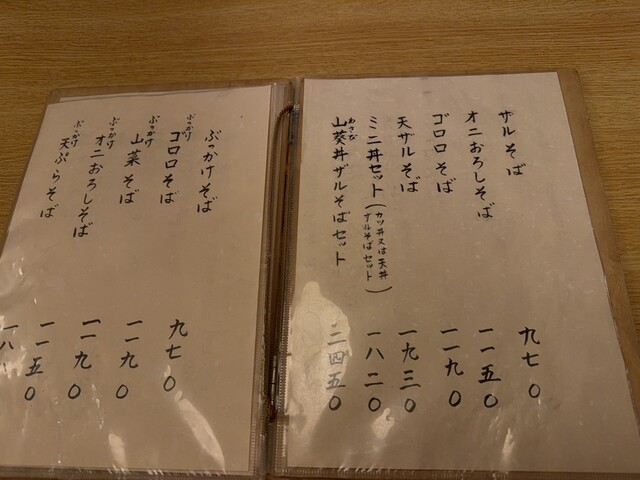 ザルそば 九七〇
オニおろしそば 一一五〇
ゴロロそば 一一九〇
天ザルそば 一九三〇
ミニ丼セット(カツ丼又は天丼 ザルそばセット) 一八二〇
わさび
山葵丼ザルそばセット 二四五〇
ぶっかけそば 九七〇
ぶっかけ
ゴロロそば 一一九〇
ぶっかけ
山菜そば 一一九〇
ぶっかけ
オニおろしそば 一一五〇
ぶっかけ
天ぷらそば 一八